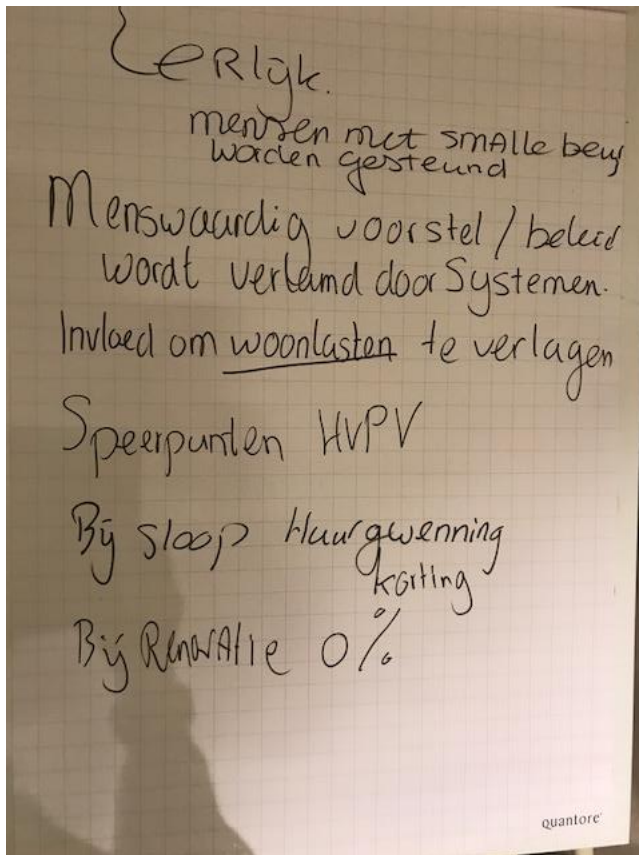 eRlijk.
mensen met smalle beurs
worden gesteund
Menswaardig voorstel / beleid
wordt verlamd door Systemen.
Invloed om woonlasten te verlagen
Speerpunten HVPV
Bij sloop Huurgwenning
korting
Bij Renovatie 0%
quantore